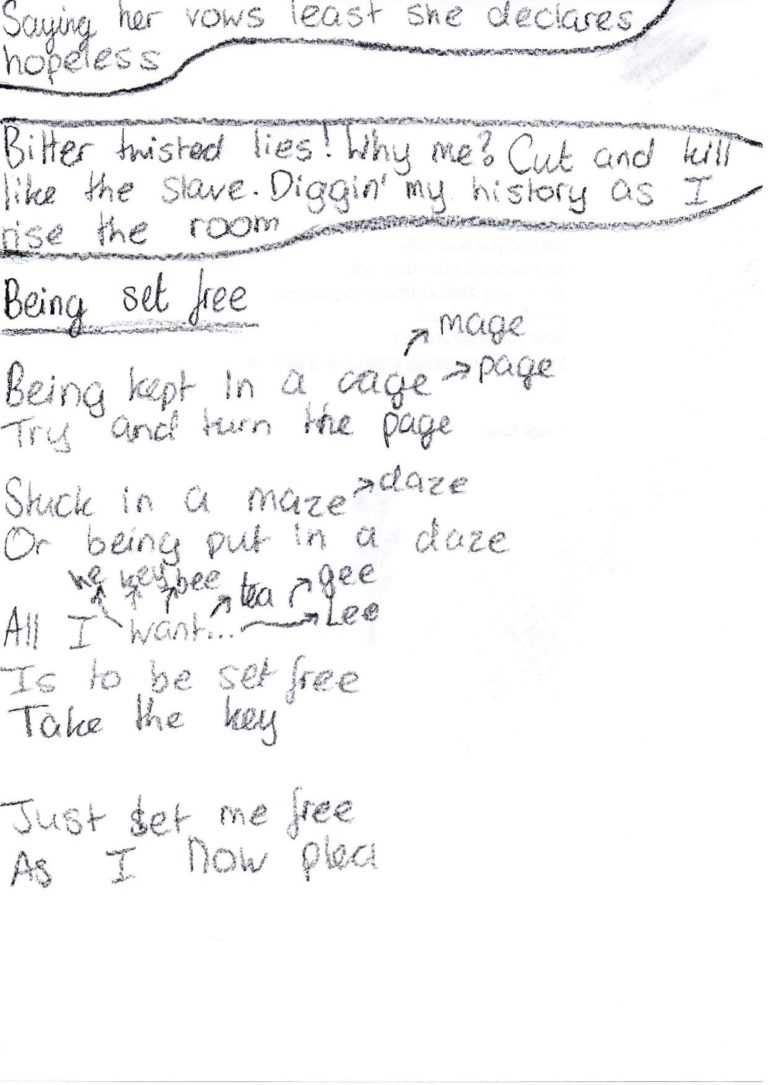 Saying her vows least she declares
hopeless
Bitter twisted lies! Why me? Cut and kill
like the slave. Diggin' my history as I
rise the room
Being set free
mage
Being kept in a cage page
Try and turn the page
Stuck in a maze daze
Or being put in a daze
he key bee tea gee
All I want... Lee
Is to be set free
Take the key
Just set me free
As I now plea